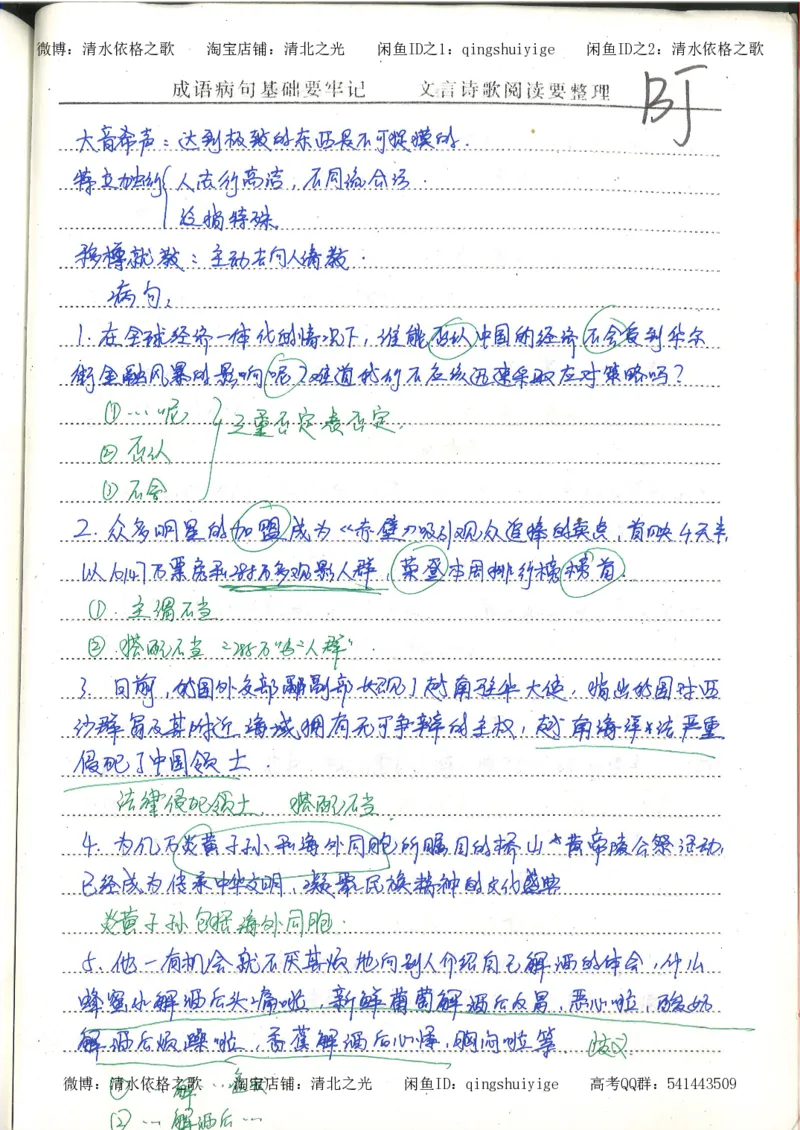 微博：清水依格之歌 淘宝店铺：清北之光 闲鱼ID之1：qingshuiyige 闲鱼ID之2：清水依格之歌
成语病句基础要牢记 文言诗歌阅读要整理
BJ
大音希声：达到极致的东西是不可捉摸的.
特立独行{人志行高洁，不同流合污.
没错特殊.
移樽就教：主动去向人请教.
病句：
1.在全球经济一体化的情况下，谁能否认中国的经济不会受到华尔
街金融风暴的影响呢？难道我们不应该迅速采取应对策略吗？
①…呢
三重否定表否定.
②否认
③不会
2.众多明星的加盟成为《赤壁》吸引观众追捧的卖点，首映4天半
以1.047万票房和285万多观影人群，荣登本周排行榜榜首.
①.主谓不当
②搭配不当
3.日前，我国外交部副部长召见了越南驻华大使，指出我国对西
沙群岛及其附近海域拥有无可争辩的主权，越南海洋法严重
侵犯了中国领土.
法律侵犯领土 搭配不当
4.为亿万炎黄子孙和海外同胞所瞩目的桥山黄帝陵公祭活动，
已经成为传承中华文明，凝聚民族精神的文化盛典
炎黄子孙包括海外同胞.
5.他一有机会就不厌其烦地向别人介绍自己解酒的体会，什么
蜂蜜水解酒后头痛啦，新鲜葡萄解酒后反胃，恶心啦，酸奶
解酒后烦躁啦，香蕉解酒后心悸，胸闷啦等. 歧义
微博：清水依格之歌 淘宝店铺：清北之光 闲鱼ID：qingshuiyige 高考QQ群：541443509
②…解酒后…